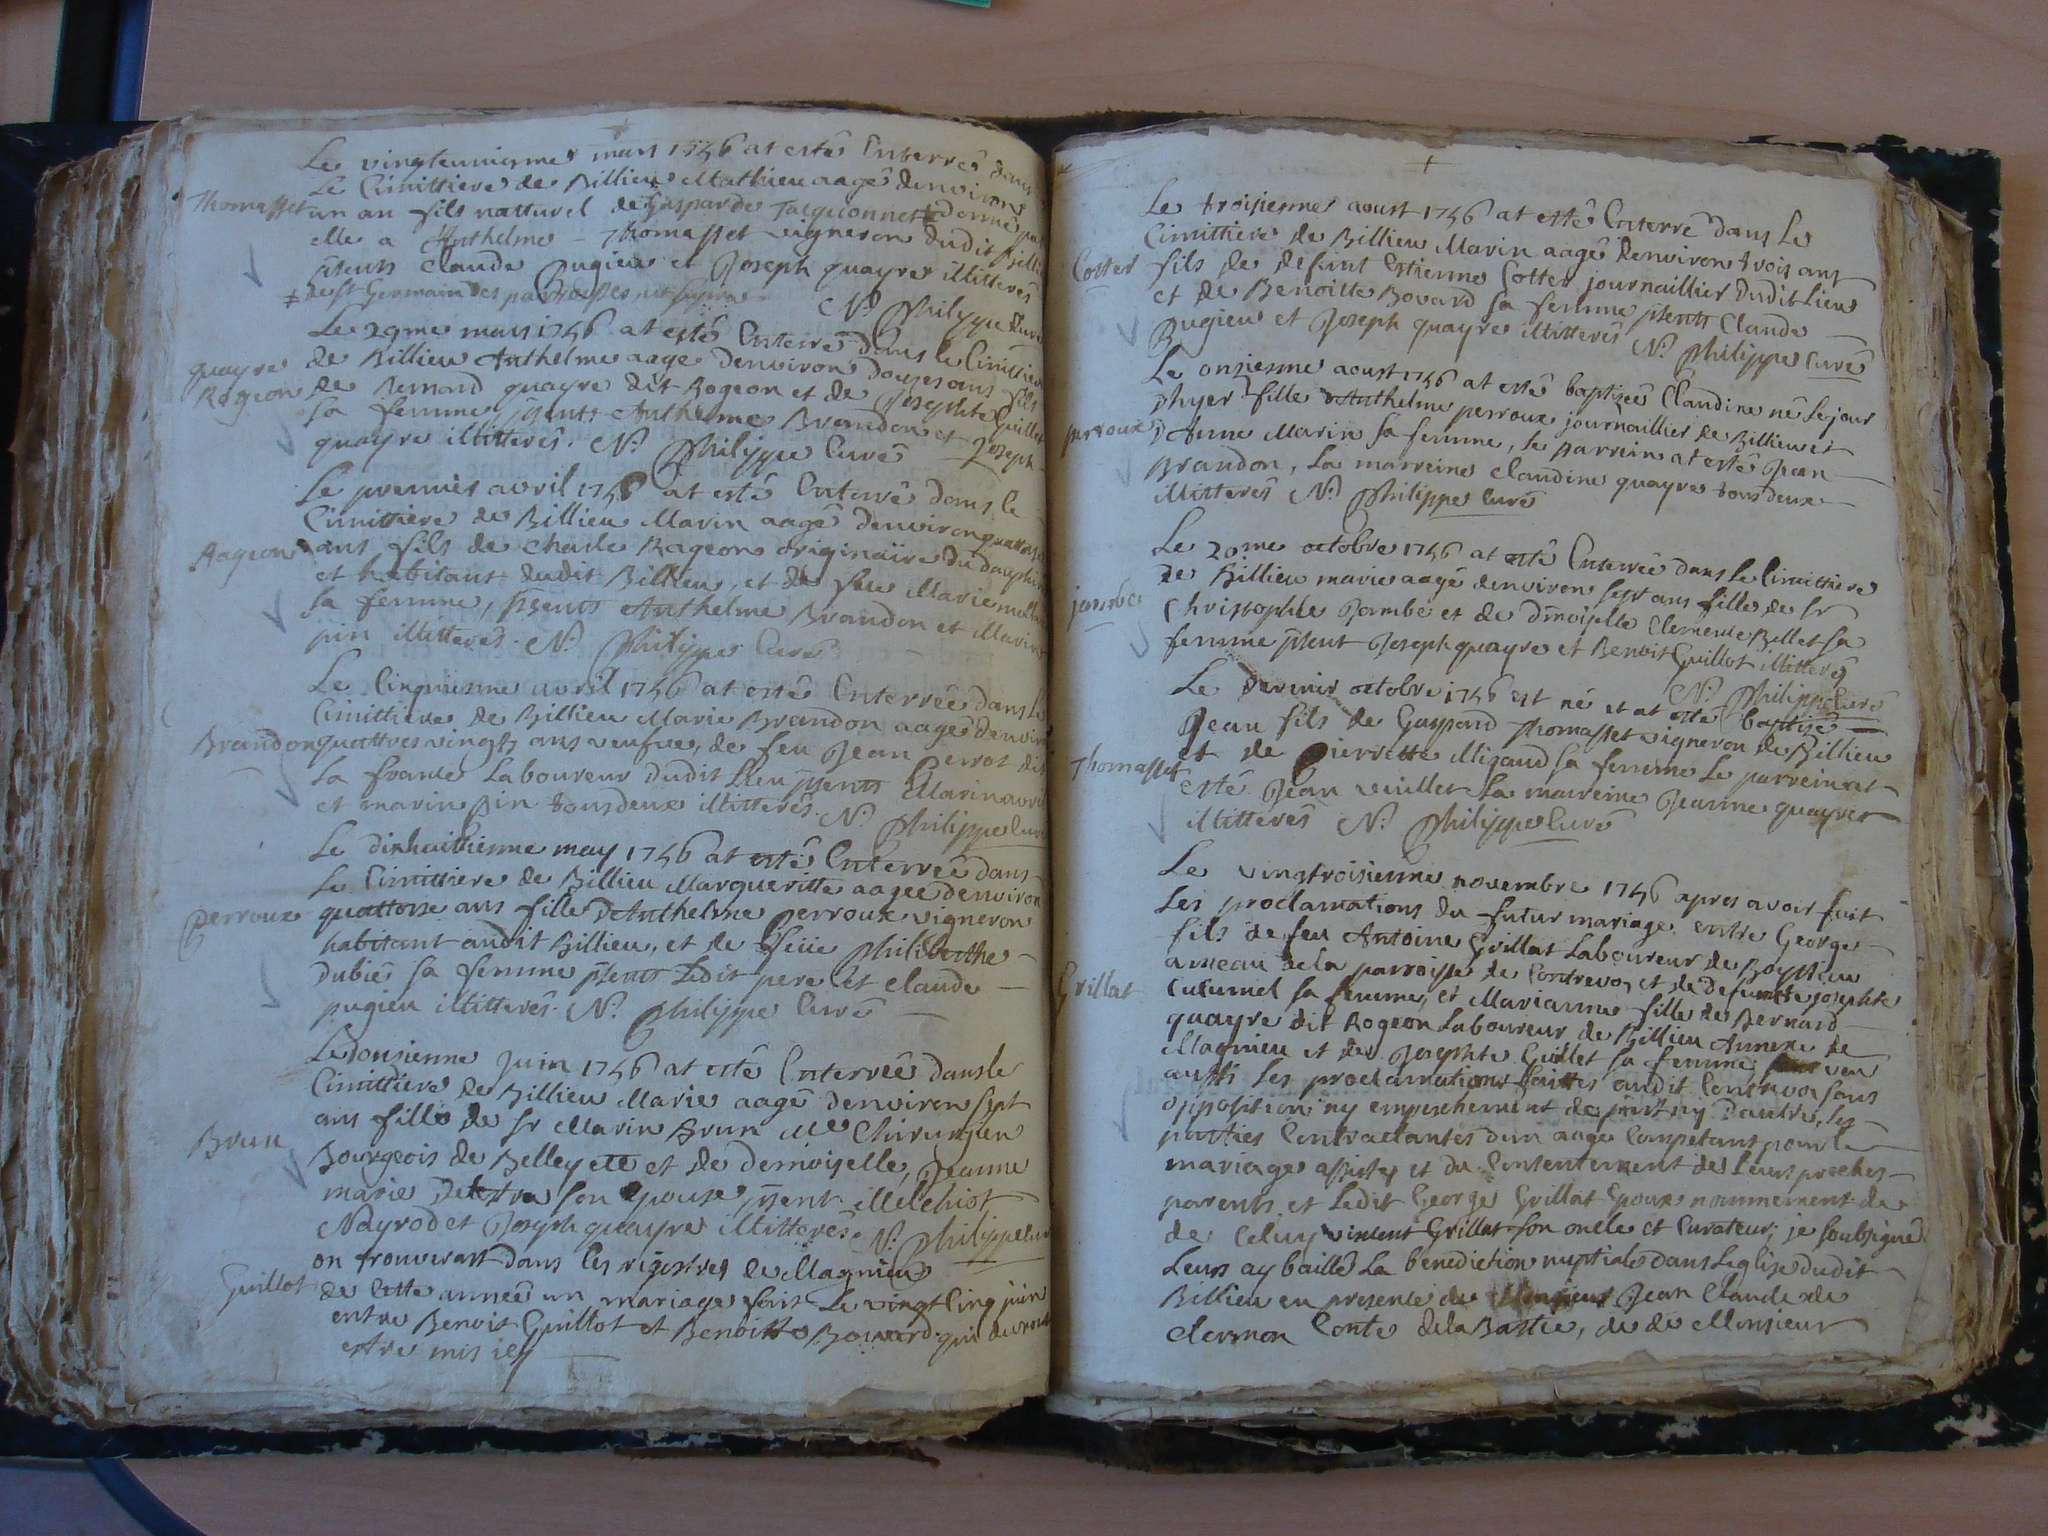 Le vingteuniesme mars 1746 at esté Enterré dans
Le Cimittiere de Billieu Mathieu aagé denviron
Thomasset un an fils natturel de Gasparde Jacquionnet ‡ donné par
elle a Anthelme Thomasset vigneron dudit Billieu
pñents Claude Pugieu et Joseph quayre illitterés
‡ de St Germain des paroisses
N. Philippe Curé
Le 29me mars 1746 at esté Enterré dans le Cimittiere
quayre de Billieu Anthelme aagé denviron douze ans fils
Rogeon de Bernard quayre dit Rogeon et de Josephte Guillet
sa femme, pñents Anthelme Brandon et Joseph
quayre illitterés. N. Philippe Curé
Le premier avril 1746 at esté Enterré dans le
Cimittiere de Billieu Marin aagé denviron quattorze
Rageon ans fils de Charle Rageon originaire du dauphiné
et habitant dudit Billieu, et de feue Marie
sa femme, pñents Anthelme Brandon et Marin
pin illitterés. N. Philippe Curé
Le Cinquiesme avril 1746 at esté Enterrée dans Le
Cimittiere de Billieu Marie Brandon aagée denviron
Brandon quattrevingts ans veufve, de feu Jean Perrot dit
la france Laboureur dudit Lieu pñents Marin
et marin pin tous deux illitterés. N. Philippe Curé
Le dixhuittiesme may 1746 at esté Enterrée dans
Le Cimittiere de Billieu Margueritte aagée denviron
perroux quattorse ans fille d'Anthelme perroux vigneron
habitant audit Billieu, et de feüe Philiberthe
Dubié sa femme pñents Ledit pere et Claude
pugieu illitterés. N. Philippe Curé
Le onsiesme Juin 1746 at esté Enterrée dans le
Cimittiere de Billieu Marie aagé denviron sept
ans fille de Sr Marin Brun Me Chirurgien
Brun Bourgeois de Belley et de Demoiselle, Jeanne
marie Delestra son Epouse, pñent Melchiot
Nayrod et Joseph quayre illitterés. N. Philippe Curé
on trouverat dans les registres de Magnieu
Guillot de Cette année un mariage fait Le vingt Cinq juin
entre Benoit Guillot et Benoitte Bouvard qui devroit
estre mis icy
Le troisiesme aoust 1746 at esté Enterré dans Le
Cimittiere de Billieu Marin aagé denviron trois ans
Cotter fils de defunt Estienne Cotter journaillier dudit Lieu
et de Benoitte Bouvard sa femme pñents Claude
Pugieu et Joseph quayre illitterés N. Philippe Curé
Le onsiesme aoust 1746 at esté baptisée Claudine né le jour
d'hyer fille d'Anthelme perroux journaillier de Billieu et
perroux d'Anne Marin sa femme, le parrein at esté Jean
Brandon, La marreine Claudine quayre tous deux
illitterés N. Philippe Curé
Le 20me octobre 1746 at esté Enterrée dans le Cimittiere
de Billieu marie aagé denviron sept ans fille de Sr
jambe Christophle Jambe et de dmoiselle Clemence Bellet sa
femme pñent Joseph quayre et Benoit Guillot illitterés
N. Philippe Curé
Le dernier octobre 1746 est né et at esté baptisé
Jean fils de Gaspard Thomasset vigneron de Billieu
Thomasset et de Pierrette Migaud sa femme Le parrein at
esté Jean vuillet La marreine Jeanne quayre
illitterés N. Philippe Curé
Le vingtroisiesme novembre 1746 apres avoir fait
Les proclamations du futur mariage entre George
fils de feu Antoine Grillat Laboureur de Boyssieu
ameau de la parroisse de Contrevoz et de defuncte josephte
Grillat Cucurnel sa femme, et Marianne fille de Bernard
quayre dit Rogeon Laboureur, de Billieu Annexe de
Magnieu et de Josephte Guillet sa femme veu
aussi Les proclamations faittes audit Contrevoz sans
opposition ny empeschement de part ny d'autre, Les
parties Contractantes d'un aage Competant pour le
mariage assistés et du Consentement de leurs proches
parents et Ledit George Grillat Epoux nommement de
de Celuy vincent Grillat son oncle et Curateur, je soubsigné
Leurs ay baillé La benediction nuptiale dans L'eglise dudit
Billieu en presence de Monsieur Jean Claude de
Clermon Conte de la Bastie, de de Monsieur